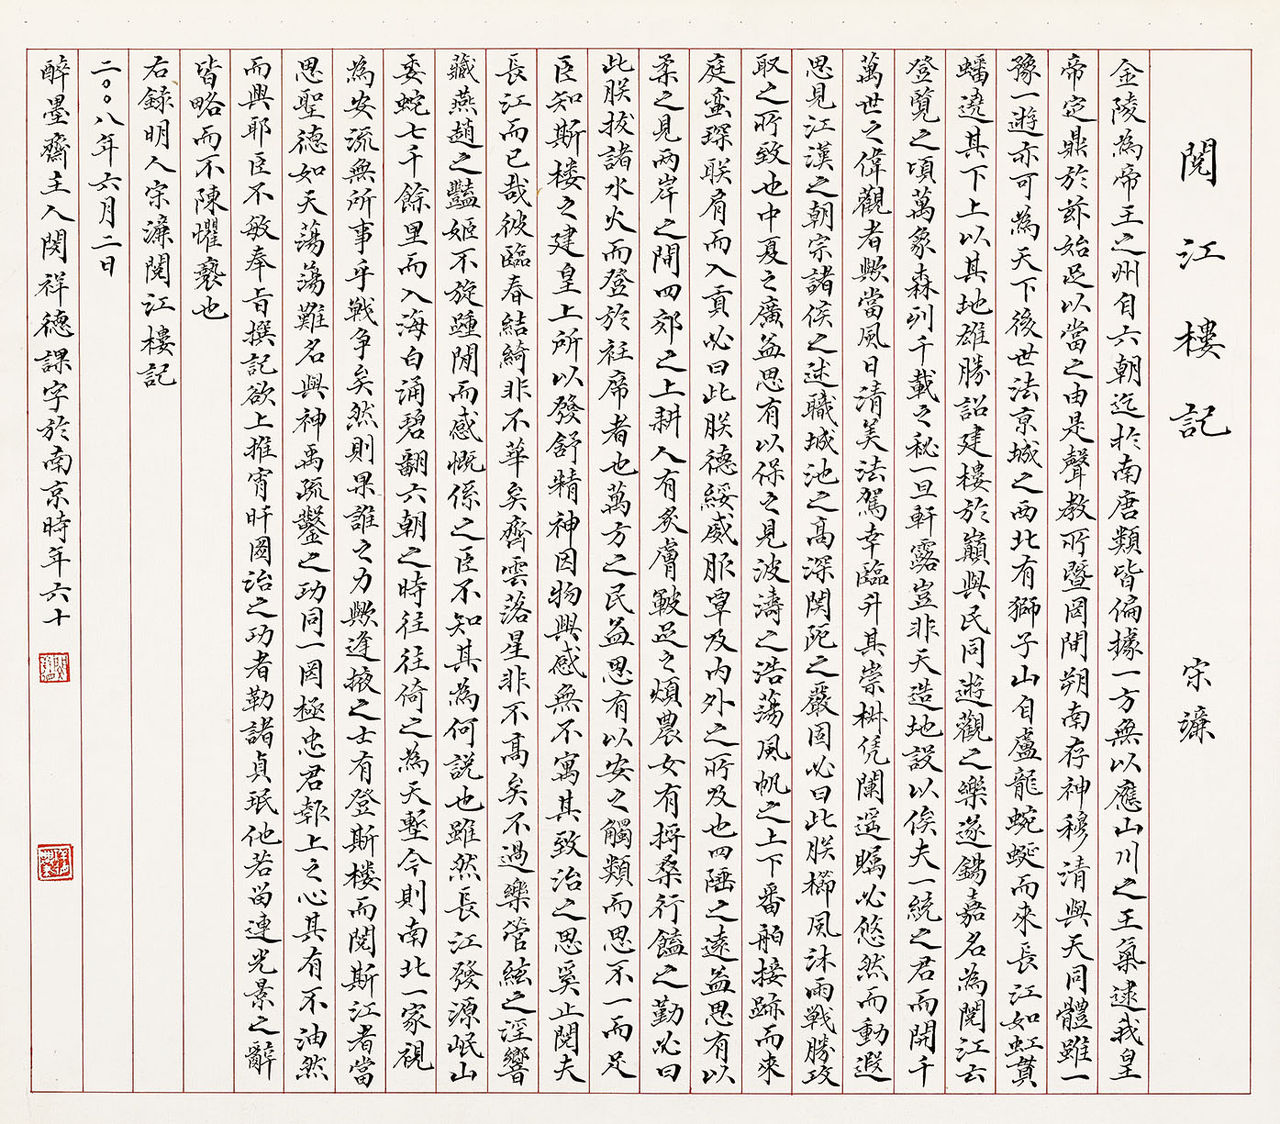 閱江樓記 宋濂
金陵為帝王之州自六朝迄於南唐類皆偏據一方無以應山川之王氣逮我皇
帝定鼎於茲始足以當之由是聲教所暨罔間朔南存神穆清與天同體雖一
豫一遊亦可為天下後世法京城之西北有獅子山自盧龍蜿蜒而來長江如虹貫
蟠遶其下上以其地雄勝詔建樓於巔與民同遊觀之樂遂錫嘉名為閱江云
登覽之頃萬象森列千載之秘一旦軒露豈非天造地設以俟夫一統之君而開千
萬世之偉觀者歟當風日清美法駕幸臨升其崇椒凭闌遥矚必悠然而動遐
思見江漢之朝宗諸侯之述職城池之高深関阨之嚴固必曰此朕櫛風沐雨戰勝攻
取之所致也中夏之廣益思有以保之見波濤之浩蕩風帆之上下番舶接跡而來
庭蛮琛联肩而入貢必曰此朕德綏威服覃及內外之所及也四陲之遠益思有以
柔之見两岸之間四郊之上耕人有炙膚皸足之煩農女有捋桑行饁之勤必曰
此朕拔諸水火而登於衽席者也萬方之民益思有以安之觸類而思不一而足
臣知斯楼之建皇上所以發舒精神因物興感無不寓其致治之思奚止閱夫
長江而已哉彼臨春結綺非不華矣齊雲落星非不高矣不過樂管絃之淫響
藏燕趙之豔姬不旋踵間而感慨係之臣不知其為何説也雖然長江發源岷山
委蛇七千餘里而入海白涌碧翻六朝之時往往倚之為天塹今則南北一家視
為安流無所事乎戰争矣然則果誰之力歟逢掖之士有登斯楼而閱斯江者當
思聖德如天蕩蕩難名與神禹疏鑿之功同一罔極忠君報上之心其有不油然
而興耶臣不敏奉旨撰記欲上推宵旰圖治之功者勒諸貞珉他若留連光景之辭
皆略而不陳懼褻也
右録明人宋濂閱江樓記
二〇〇八年六月二日
醉墨齋主人関祥德課字於南京時年六十